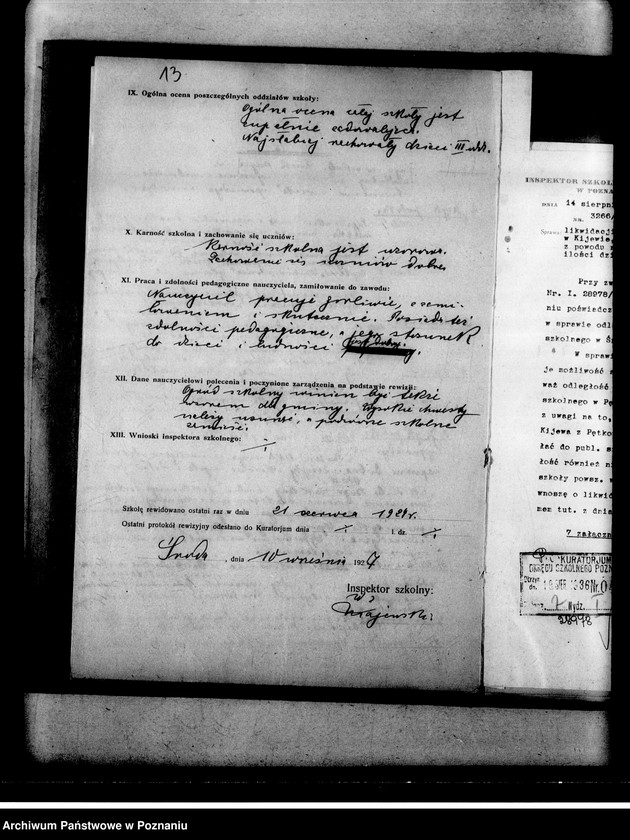 13
IX. Ogólna ocena poszczególnych oddziałów szkoły:
Ogólna ocena całej szkoły jest
zupełnie zadowalająca.
Najsłabiej rachowały dzieci III oddz.
X. Karność szkolna i zachowanie się uczniów:
Karność szkolna jest wzorowa.
Zachowanie się uczniów dobre.
XI. Praca i zdolności pedagogiczne nauczyciela, zamiłowanie do zawodu:
Nauczyciel pracuje gorliwie, z zami-
łowaniem i skutecznie. Posiada też
zdolności pedagogiczne, a jego stosunek
do dzieci i ludności jest dobry.
XII. Dane nauczycielowi polecenia i poczynione zarządzenia na podstawie rewizji:
Ogród szkolny winien być także
wzorem dla gminy. Wysokie chwasty
należy usunąć, a podwórze szkolne
XIII. Wnioski inspektora szkolnego:
Szkołę rewidowano ostatni raz w dniu 21 czerwca 192
Ostatni protokół rewizyjny odesłano do Kuratorjum dnia l. dz.
Środa, dnia 10 września 1927
Inspektor szkolny:
INSPEKTOR SZKOL
W POZNA
DNIA 14 sierpni
NR. 3266/
Sprawa: likwidacji
w Kijewie,
z powodu n
ilości dzi
Przy zw
Nr. I. 28978/
niu poświadcz
w sprawie odl
szkolnego w Ś
W sprawi
je możliwość s
waż odległość
szkolnego w Pę
z uwagi na to,
Kijewa z Pętko
łać do publ. s
łość również n
szkoły powsz. w
wnoszę o likwid
mez tut. z dnia
7 załączn
KURATORJUM
OKRĘGU SZKOLNEGO POZN
Otrzym. dn. 19 SIER. 1936 Nr.
7 Wydz. I
28978
Archiwum Państwowe w Poznaniu